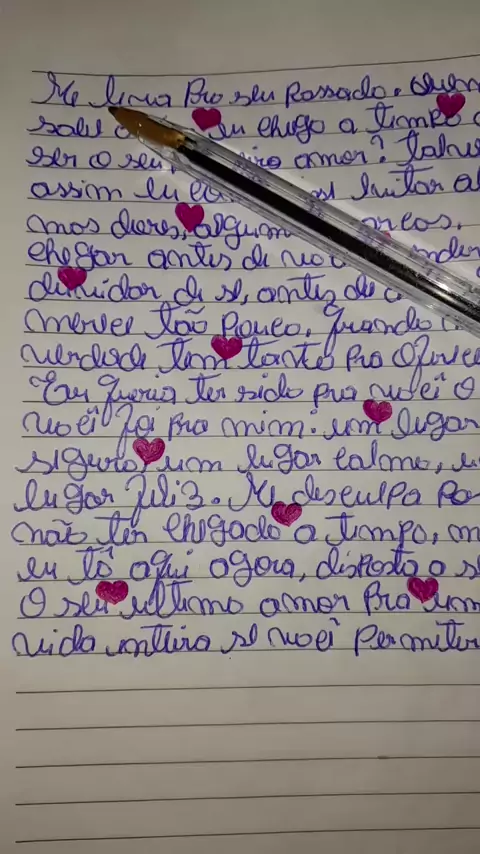 Me leva pro seu passado. Quem
sabe eu chego a tempo
ser o seu amor? Talve
assim eu evitar al
mas dores, algum
chegar antes de você
duvidar de si, antes de
merece tão pouco, quando
verdade tem tanto pra oferece
Eu queria ter sido pra você o
você foi pra mim: um lugar
seguro, um lugar calmo, u
lugar feliz. Me desculpa po
não ter chegado a tempo, m
eu tô aqui agora, disposto a s
o seu último amor pra um
vida inteira se você permitir